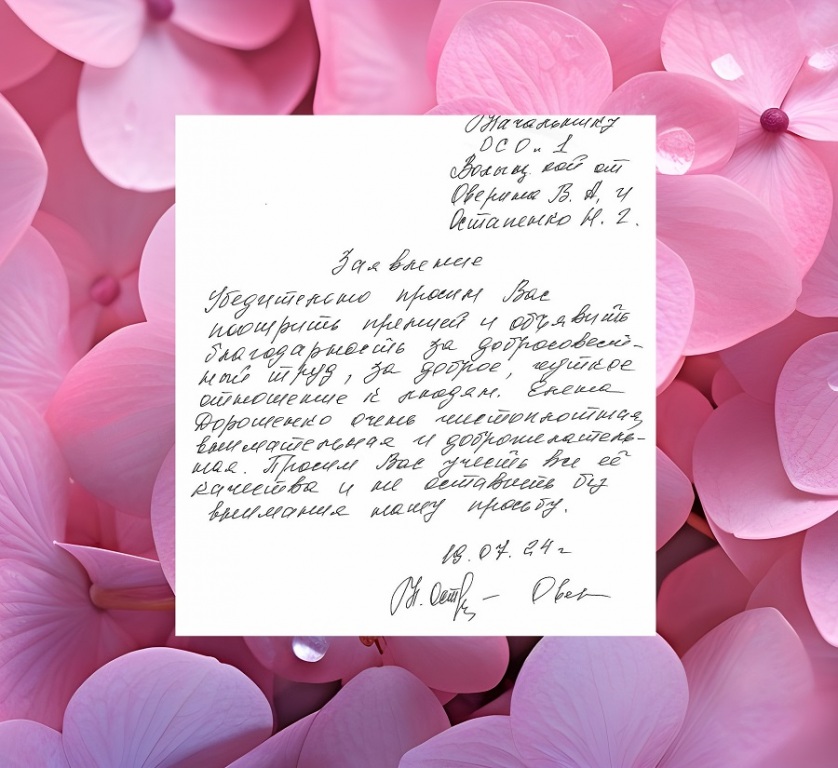 Начальнику
ОСО № 1
от
Оверина В. А, и
Остапенко Н. Г.
Заявление
Убедительно просим Вас
поощрить премией и объявить
благодарность за добросовест-
ный труд, за доброе, чуткое
отношение к людям. Елена
Дорошенко очень чистоплотная,
внимательная и доброжелатель-
ная. Просим Вас учесть все её
качества и не оставить без
внимания нашу просьбу.
19.07.24 г
Н. Ост — Овер